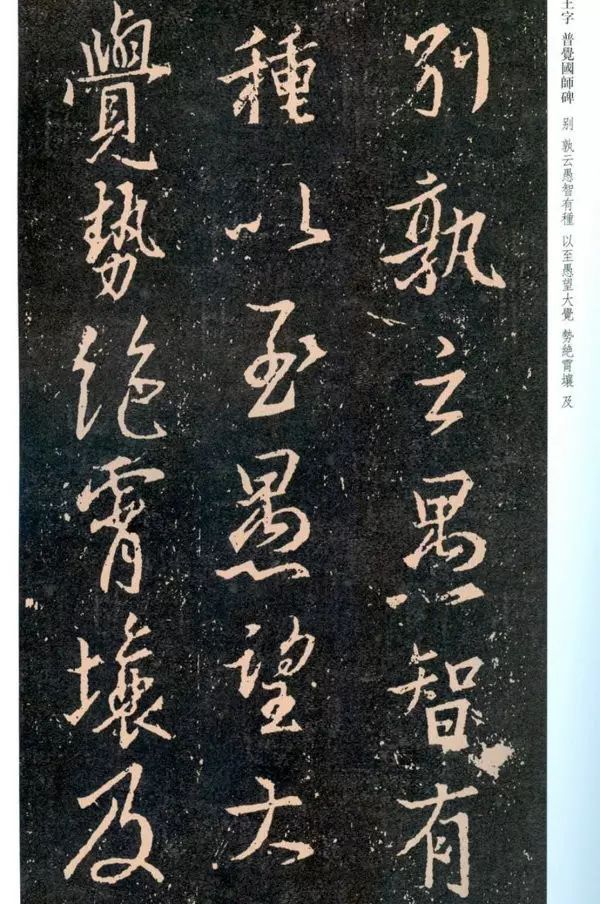 別孰云愚智有
種以至愚望大
覺勢絶霄壤及
王字 普覺國師碑 別 孰云愚智有種 以至愚望大覺 勢絶霄壤 及